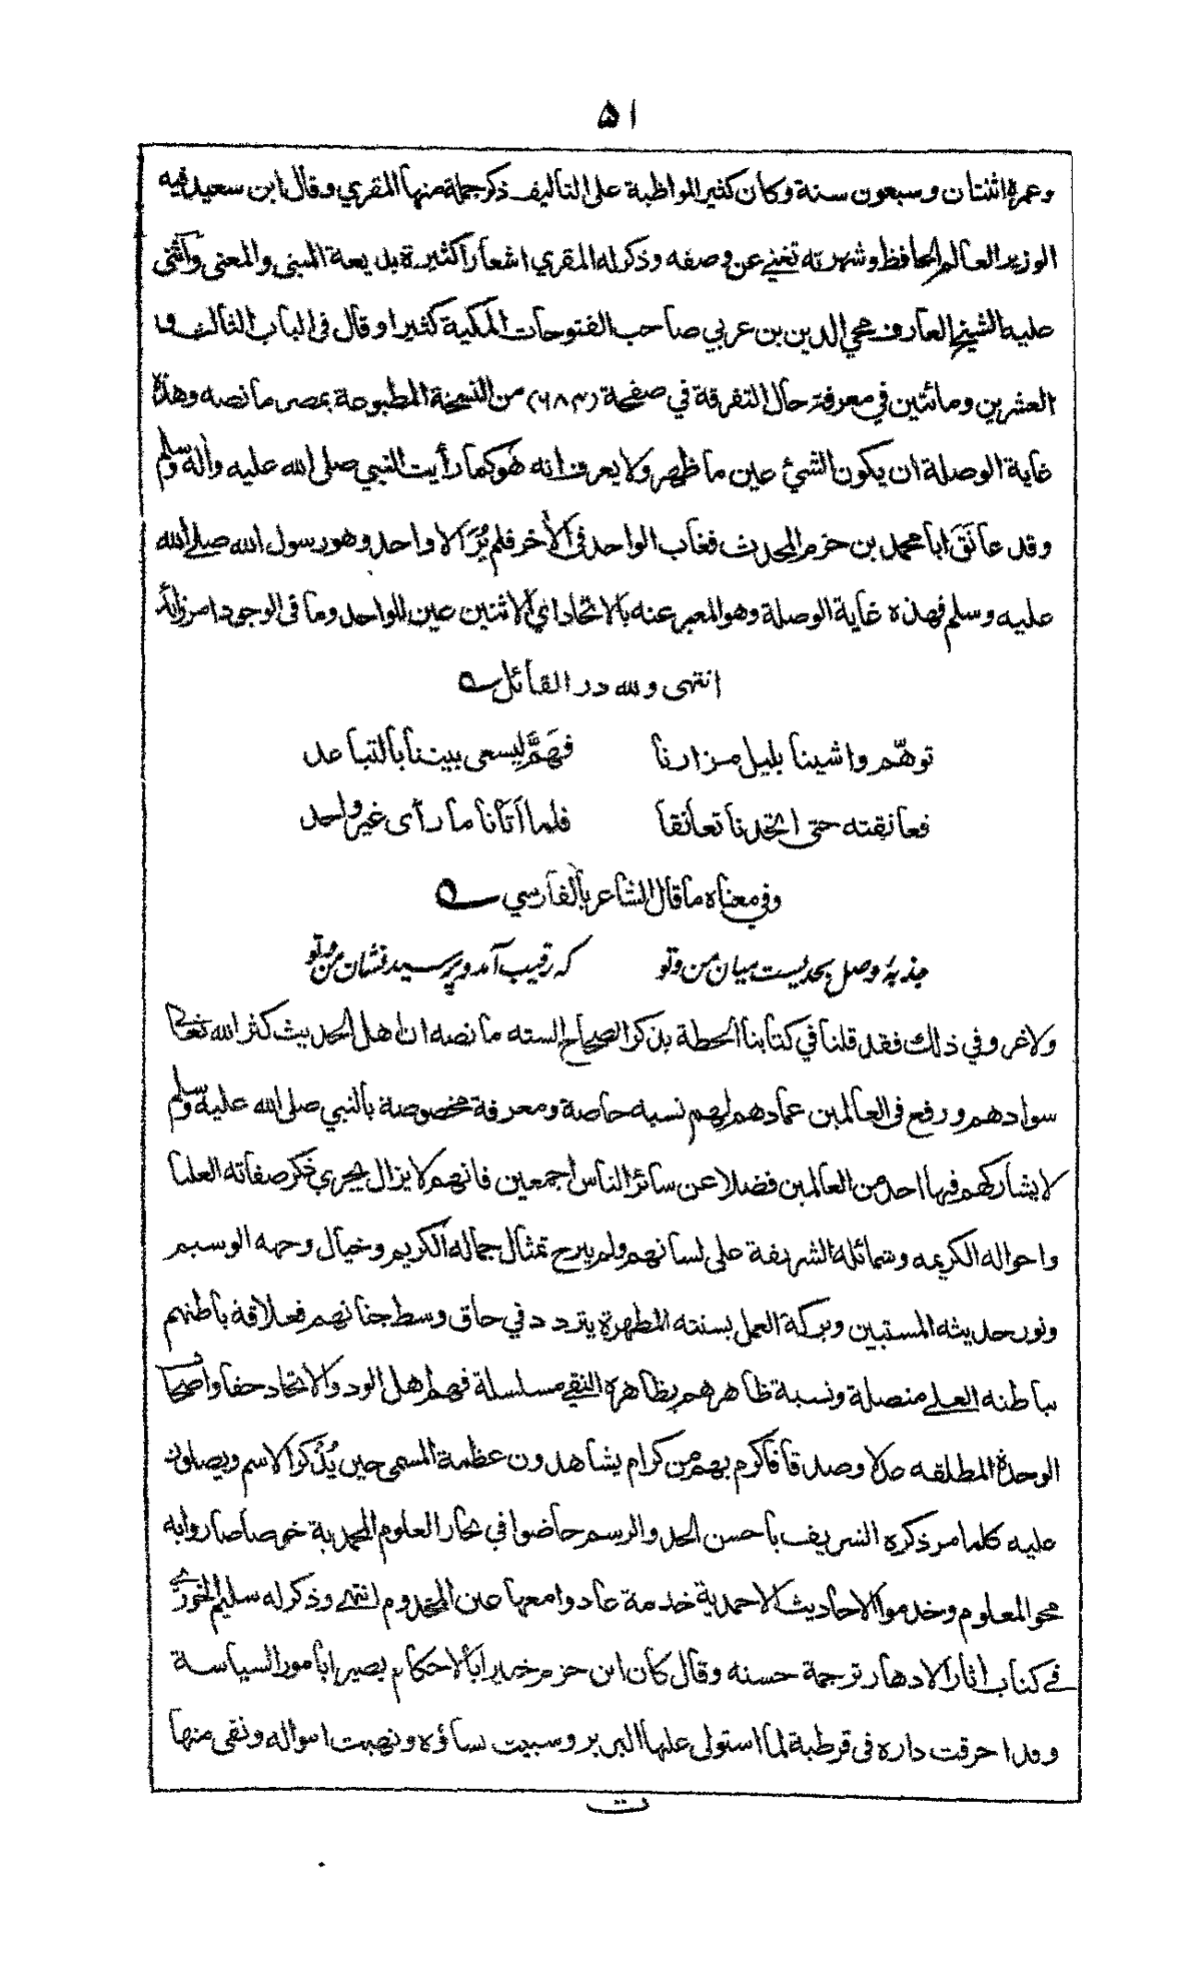 ۵۱
وعمره اثنتان وسبعون سنة وكان كثير المواظبة على التاليف ذكر جملة منها المقري وقال ابن سعيد فيه
الوزير العالم الحافظ وشهرته تغني عن وصفه وذكر له المقري اشعارا كثيرة بديعة المبنى والمعنى واثنى
عليه الشيخ العارف محي الدين بن عربي صاحب الفتوحات المكية كثيرا وقال فى الباب الثالث و
العشرين ومائتين في معرفة حال التفرقة في صفحة (۶۸۳) من النسخة المطبوعة بمصر ما نصه وهذه
غاية الوصلة ان يكون الشئ عين ما ظهر ولا يعرف انه هو كما رأيت النبي صلى الله عليه وآله وسلم
وقد عانَقَ ابا محمد بن حزم المحدث فغاب الواحد فى الآخر فلم يُرَ الا واحد وهو رسول الله صلے الله
عليه وسلم فهذه غاية الوصلة وهو المعبر عنه بالاتحاد اي الاثنين عين للواحد وما فى الوجود امر زائد
انتهى ولله در القائل
توهّم واشينا بليل مزارنا فهَمَّ ليسعى بيننا بالتباعد
فعانقته حتى اتحدنا تعانقا فلما اتانا ما رأى غير واحد
وفي معناه ما قال الشاعر بالفارسي
جذبۂ وصل بحدیست میان من و تو که رقیب آمد و پرسید نشان من و تو
ولا غرو في ذلك فقد قلنا في كتابنا الحطة بذكر الصحاح السته ما نصه ان اهل الحديث كثر الله تعالى
سوادهم ورفع فى العالمين عمادهم لهم نسبه خاصة ومعرفة مخصوصة بالنبي صلى الله عليه وسلم
لا يشاركهم فيها احد من العالمين فضلا عن سائر الناس اجمعين فانهم لا يزال يجري ذكر صفاته العليا
واحواله الكريمه وشمائله الشريفة على لسانهم ولم يبرح تمثال جماله الكريم وخيال وجهه الوسيم
ونور حديثه المستبين وبركة العمل بسنته المطهرة يتردد في حاق وسط جنانهم فعلاقة باطنهم
بباطنه العلے متصلة ونسبة ظاهرهم بظاهره النقي مسلسلة فهم اهل الود والاتحاد حقا واصحاب
الوحدة المطلقه عدلا وصدقا فاكرم بهم من كرام يشاهدون عظمة المسمى حين يُذكر الاسم ويصلون
عليه كلما مر ذكره الشريف باحسن الحد والرسم خاضوا في بحار العلوم المحمدية خمصا صاروا به
محو المعلوم وخدموا الاحاديث الاحمدية خدمة عادوا معها عين المخدوم انتهے وذكر له سليم الخوري
في كتاب اثار الادهار ترجمة حسنه وقال كان ابن حزم خبيرا بالاحكام بصيرا بامور السياسة
وقد احرقت داره فى قرطبة لما استولى عليها البربر وسبيت نساؤه ونهبت امواله ونفى منها
ت